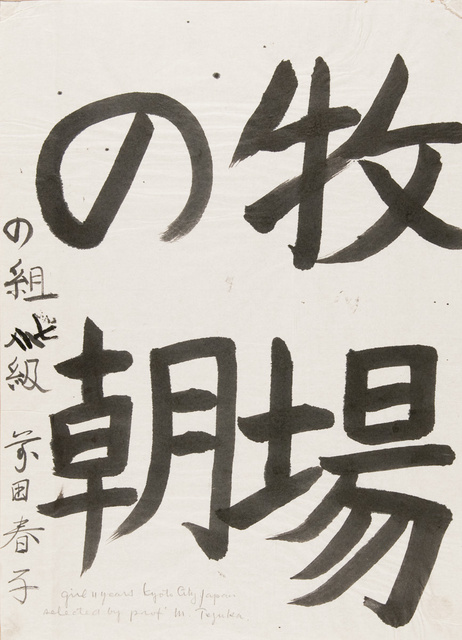 牧場
の朝
の組 級 前田春子
girl 11 years Kyoto City Japan
selected by prof M Tezuka